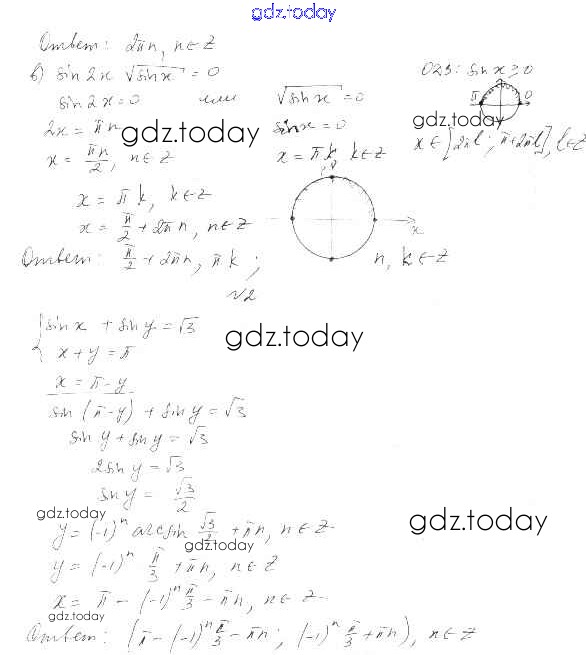 gdz.today
Ответ: 2πn, n∈Z
в) sin 2x √sin x = 0
ОДЗ: sin x ≥ 0
sin 2x = 0 или √sin x = 0
π 0
gdz.today
2x = πn sin x = 0
gdz.today
x = πn/2, n∈Z x = πk, k∈Z
x∈[2πl; π+2πl], l∈Z
x = πk, k∈Z
x = π/2 + 2πn, n∈Z
x
Ответ: π/2 + 2πn, πk; n, k∈Z
√2
{sin x + sin y = √3
x + y = π
gdz.today
x = π - y
sin (π-y) + sin y = √3
sin y + sin y = √3
2sin y = √3
sin y = √3/2
gdz.today
gdz.today
y = (-1)ⁿ arcsin √3/2 + πn, n∈Z
gdz.today
y = (-1)ⁿ π/3 + πn, n∈Z
x = π - (-1)ⁿ π/3 - πn, n∈Z
gdz.today
Ответ: (π - (-1)ⁿ π/3 - πn; (-1)ⁿ π/3 + πn), n∈Z